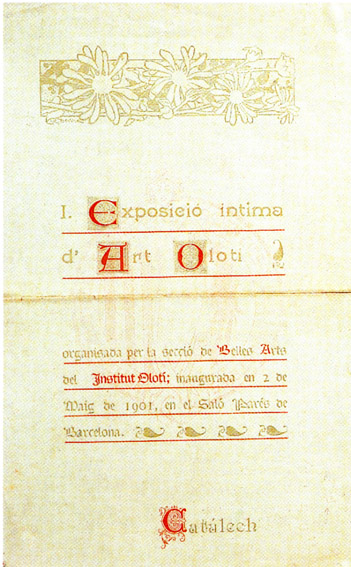 I. Exposició íntima
d' Art Olotí
organisada per la secció de Belles Arts
del Institut Olotí; inaugurada en 2 de
Maig de 1901, en el Saló Parés de
Barcelona.
Catálech